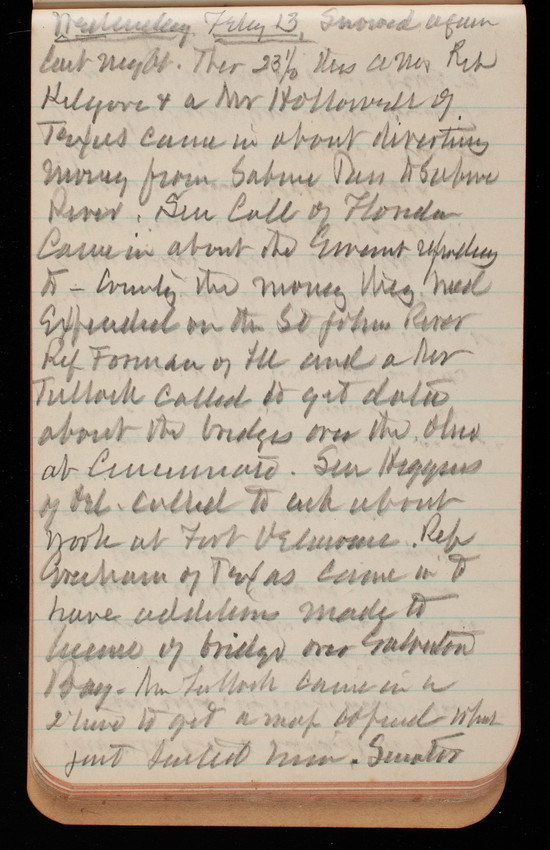 Wednesday Feby 13, Snowed again
last night. Ther 23½ this a m. Rep
Kilgore & a Mr Hollowell of
Texas came in about diverting
money from Sabine Pass to Sabine
River. Sen Call of Florida
Came in about the Govmt
to - County the money they had
Expended on the St Johns River
Rep Forman of Ill and a Mr
Tullock called to get data
about the bridges over the Ohio
at Cincinnati. Sen Higgins
of Del. called to ask about
work at Fort Delaware. Rep
Gresham of Texas came in to
have additions made to
license of bridge over Galveston
Bay. Mr Tullock came in a
2 time to get a map copied which
just suited him. Senator